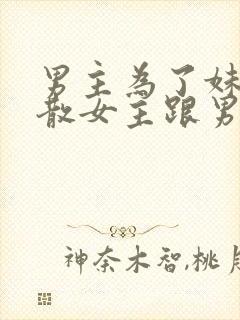 男主為了妹
散女主跟男
神奈木智,桃月